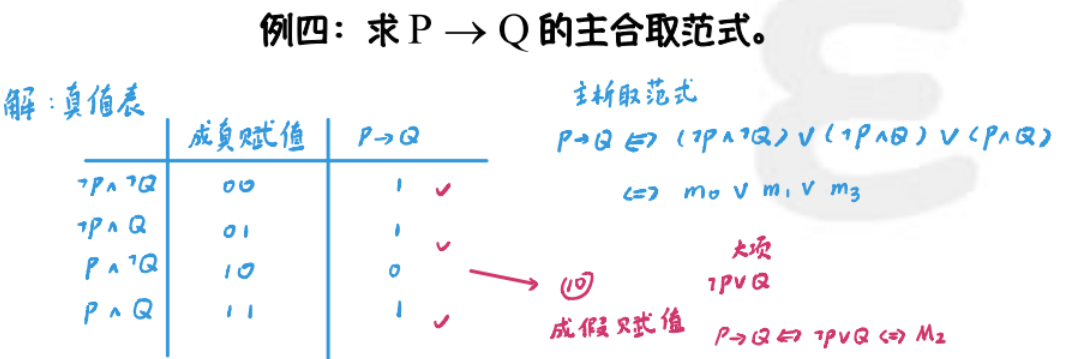 例四：求 P → Q 的主合取范式。
解：真值表
成真赋值 P→Q
¬P∧¬Q 00 1 ✓
¬P∧Q 01 1 ✓
P∧¬Q 10 0
P∧Q 11 1 ✓
主析取范式
P→Q ⇔ (¬P∧¬Q) ∨ (¬P∧Q) ∨ (P∧Q)
⇔ m₀ ∨ m₁ ∨ m₃
→ ⑩ 大项
成假赋值 ¬P∨Q
P→Q ⇔ ¬P∨Q ⇔ M₂